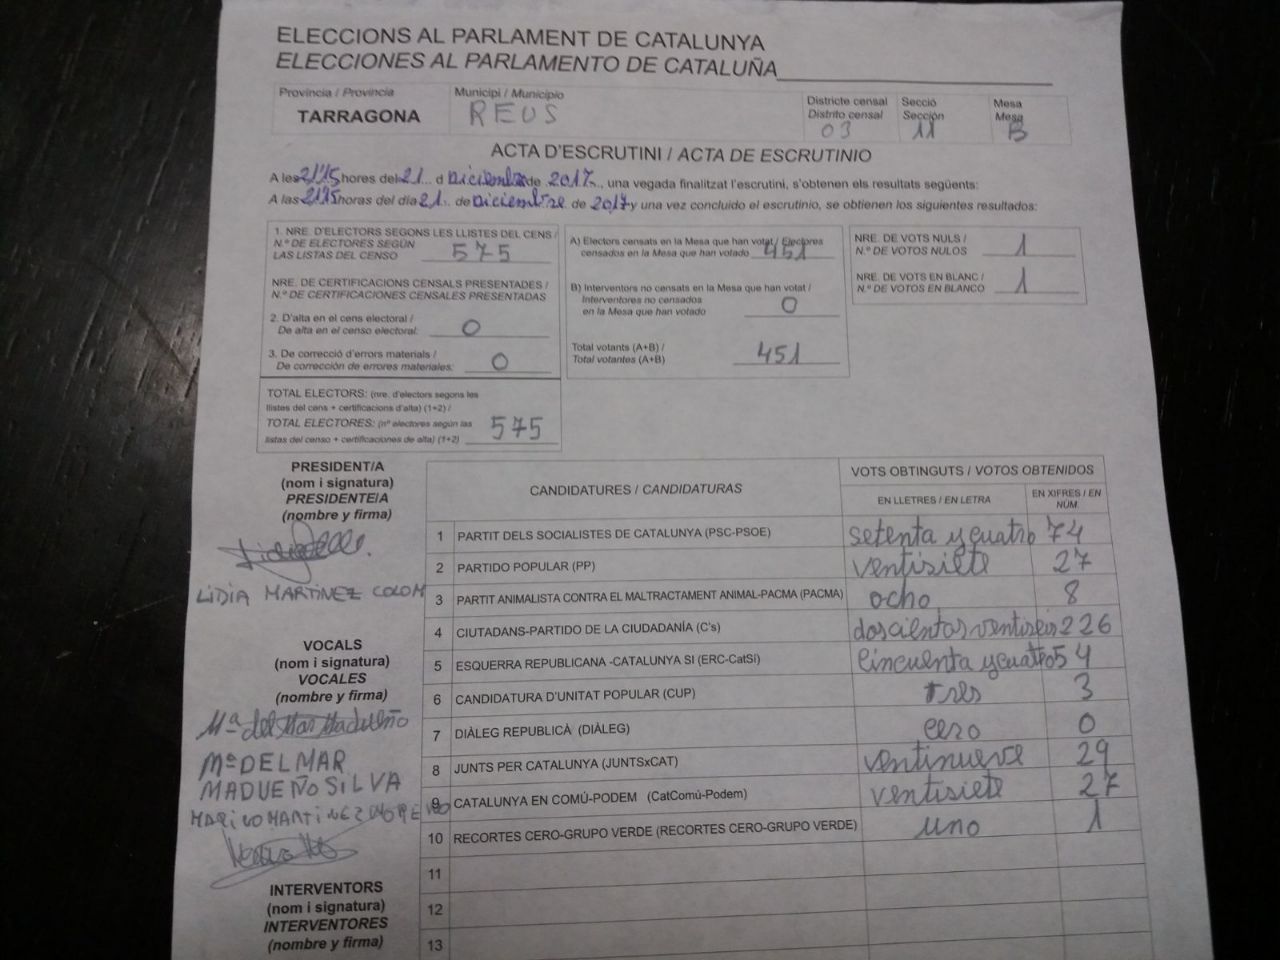 ELECCIONS AL PARLAMENT DE CATALUNYA
ELECCIONES AL PARLAMENTO DE CATALUÑA
Província / Provincia
TARRAGONA
Municipi / Municipio
REUS
Districte censal
Distrito censal
03
Secció
Sección
11
Mesa
Mesa
B
ACTA D'ESCRUTINI / ACTA DE ESCRUTINIO
A les 21'15 hores del 21 d Diciembre de 2017, una vegada finalitzat l'escrutini, s'obtenen els resultats següents:
A las 21'15 horas del día 21 de Diciembre de 2017 y una vez concluido el escrutinio, se obtienen los siguientes resultados:
1. NRE. D'ELECTORS SEGONS LES LLISTES DEL CENS /
N.º DE ELECTORES SEGÚN
LAS LISTAS DEL CENSO 575
NRE. DE CERTIFICACIONS CENSALS PRESENTADES /
N.º DE CERTIFICACIONES CENSALES PRESENTADAS
2. D'alta en el cens electoral /
De alta en el censo electoral: 0
3. De correcció d'errors materials /
De corrección de errores materiales: 0
TOTAL ELECTORS: (nre. d'electors segons les
llistes del cens + certificacions d'alta) (1+2) /
TOTAL ELECTORES: (nº electores según las
listas del censo + certificaciones de alta) (1+2) 575
A) Electors censats en la Mesa que han votat / Electores
censados en la Mesa que han votado 451
B) Interventors no censats en la Mesa que han votat /
Interventores no censados
en la Mesa que han votado 0
Total votants (A+B) /
Total votantes (A+B) 451
NRE. DE VOTS NULS /
N.º DE VOTOS NULOS 1
NRE. DE VOTS EN BLANC /
N.º DE VOTOS EN BLANCO 1
PRESIDENT/A
(nom i signatura)
PRESIDENTE/A
(nombre y firma)
LIDIA MARTINEZ COLOM
VOCALS
(nom i signatura)
VOCALES
(nombre y firma)
Mª del Mar Madueño
Mª DEL MAR
MADUEÑO SILVA
INTERVENTORS
(nom i signatura)
INTERVENTORES
(nombre y firma)
CANDIDATURES / CANDIDATURAS
VOTS OBTINGUTS / VOTOS OBTENIDOS
EN LLETRES / EN LETRA
EN XIFRES / EN
NÚM.
1 PARTIT DELS SOCIALISTES DE CATALUNYA (PSC-PSOE) setenta y cuatro 74
2 PARTIDO POPULAR (PP) ventisiete 27
3 PARTIT ANIMALISTA CONTRA EL MALTRACTAMENT ANIMAL-PACMA (PACMA) ocho 8
4 CIUTADANS-PARTIDO DE LA CIUDADANÍA (C's) doscientos ventiseis 226
5 ESQUERRA REPUBLICANA -CATALUNYA SI (ERC-CatSí) cincuenta y cuatro 54
6 CANDIDATURA D'UNITAT POPULAR (CUP) tres 3
7 DIÀLEG REPUBLICÀ (DIÀLEG) cero 0
8 JUNTS PER CATALUNYA (JUNTSxCAT) ventinueve 29
9 CATALUNYA EN COMÚ-PODEM (CatComú-Podem) ventisiete 27
10 RECORTES CERO-GRUPO VERDE (RECORTES CERO-GRUPO VERDE) uno 1
11
12
13